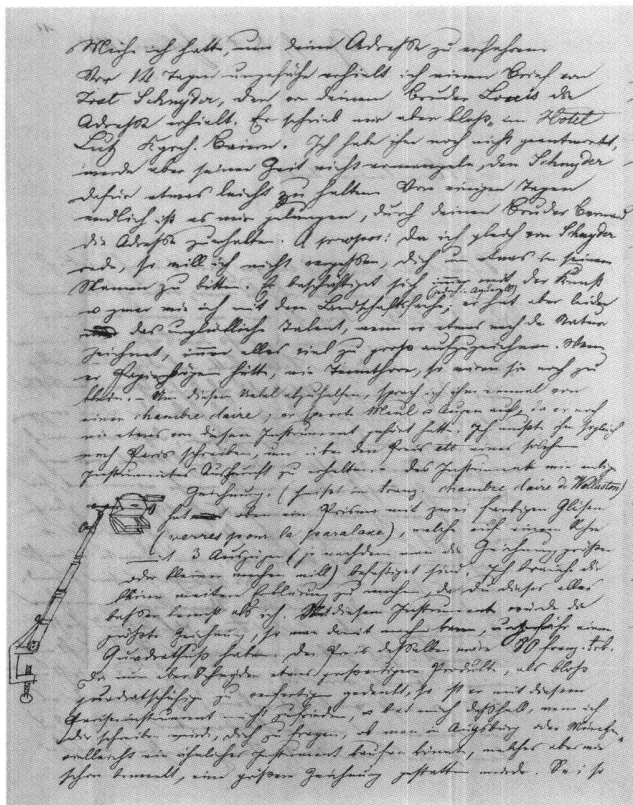 Mühe ich hatte, um deine Adresse zu erfahren
Vor 14 Tagen ungefähr erhielt ich einen Brief von
Schnyder, den er deinem Bruder Louis die
Adresse erhielt. Er schrieb mir aber bloß, im Hotel
Ich habe ihm noch nicht geantwortet,
werde aber seiner Zeit nicht ermangeln, den Schnyder
etwas leicht zu halten. Vor einigen Tagen
endlich ist es mir gelungen, durch deinen Bruder
die Adresse zu erhalten. A propos: da ich gleich von Schnyder
rede, so will ich nicht vergessen, dich um etwas in seinem
Namen zu bitten. Er beschäftigt sich mit der Kunst
zwar wie ich mit dem Landschaftsfache, er hat aber leider
das unglückliche Talent, wenn er etwas nach der Natur
zeichnet, immer alles viel zu groß aufzuzeichnen. Wenn
er hätte, wie so wären sie noch zu
klein. Um diesem Übel abzuhelfen, sprach ich ihm einmal von
einer chambre claire, er sperrt Maul & Augen auf, da er noch
nie etwas von diesem Instrument gehört hatte. Ich mußte ihm sogleich
nach Paris schreiben, um über den Preis eines solchen
Instrumentes Auskunft zu erhalten. Das Instrument wie
Zeichnung (heißt in franz. chambre claire de Wollaston)
hat oben ein Prisma mit zwei farbigen Gläsern
(verres pour la paralaxe), welche auf einem
mit 3 Auszügen (je nachdem man die Zeichnung größer
oder kleiner machen will) befestiget sind. Ich brauche dir
keine weitere Erklärung zu machen, da du dieses alles
besser kennst als ich. Mit diesem Instrumente würde die
größte Zeichnung, so man damit machen kann, ungefähr einen
Quadratfuß haben. Der Preis desselben wäre 50 franz. frk.
Da nun etwas Produkte, als bloß
zu verfertigen gedenkt, so ist er mit diesem
nicht zufrieden, & bat mich deßhalb, wenn ich
dir schreiben werde, dich zu fragen, ob man in Augsburg oder München
vielleicht ein ähnliches Instrument kaufen könne, welches aber wie
schon bemerkt, eine größere Zeichnung gestatten würde. Sei so